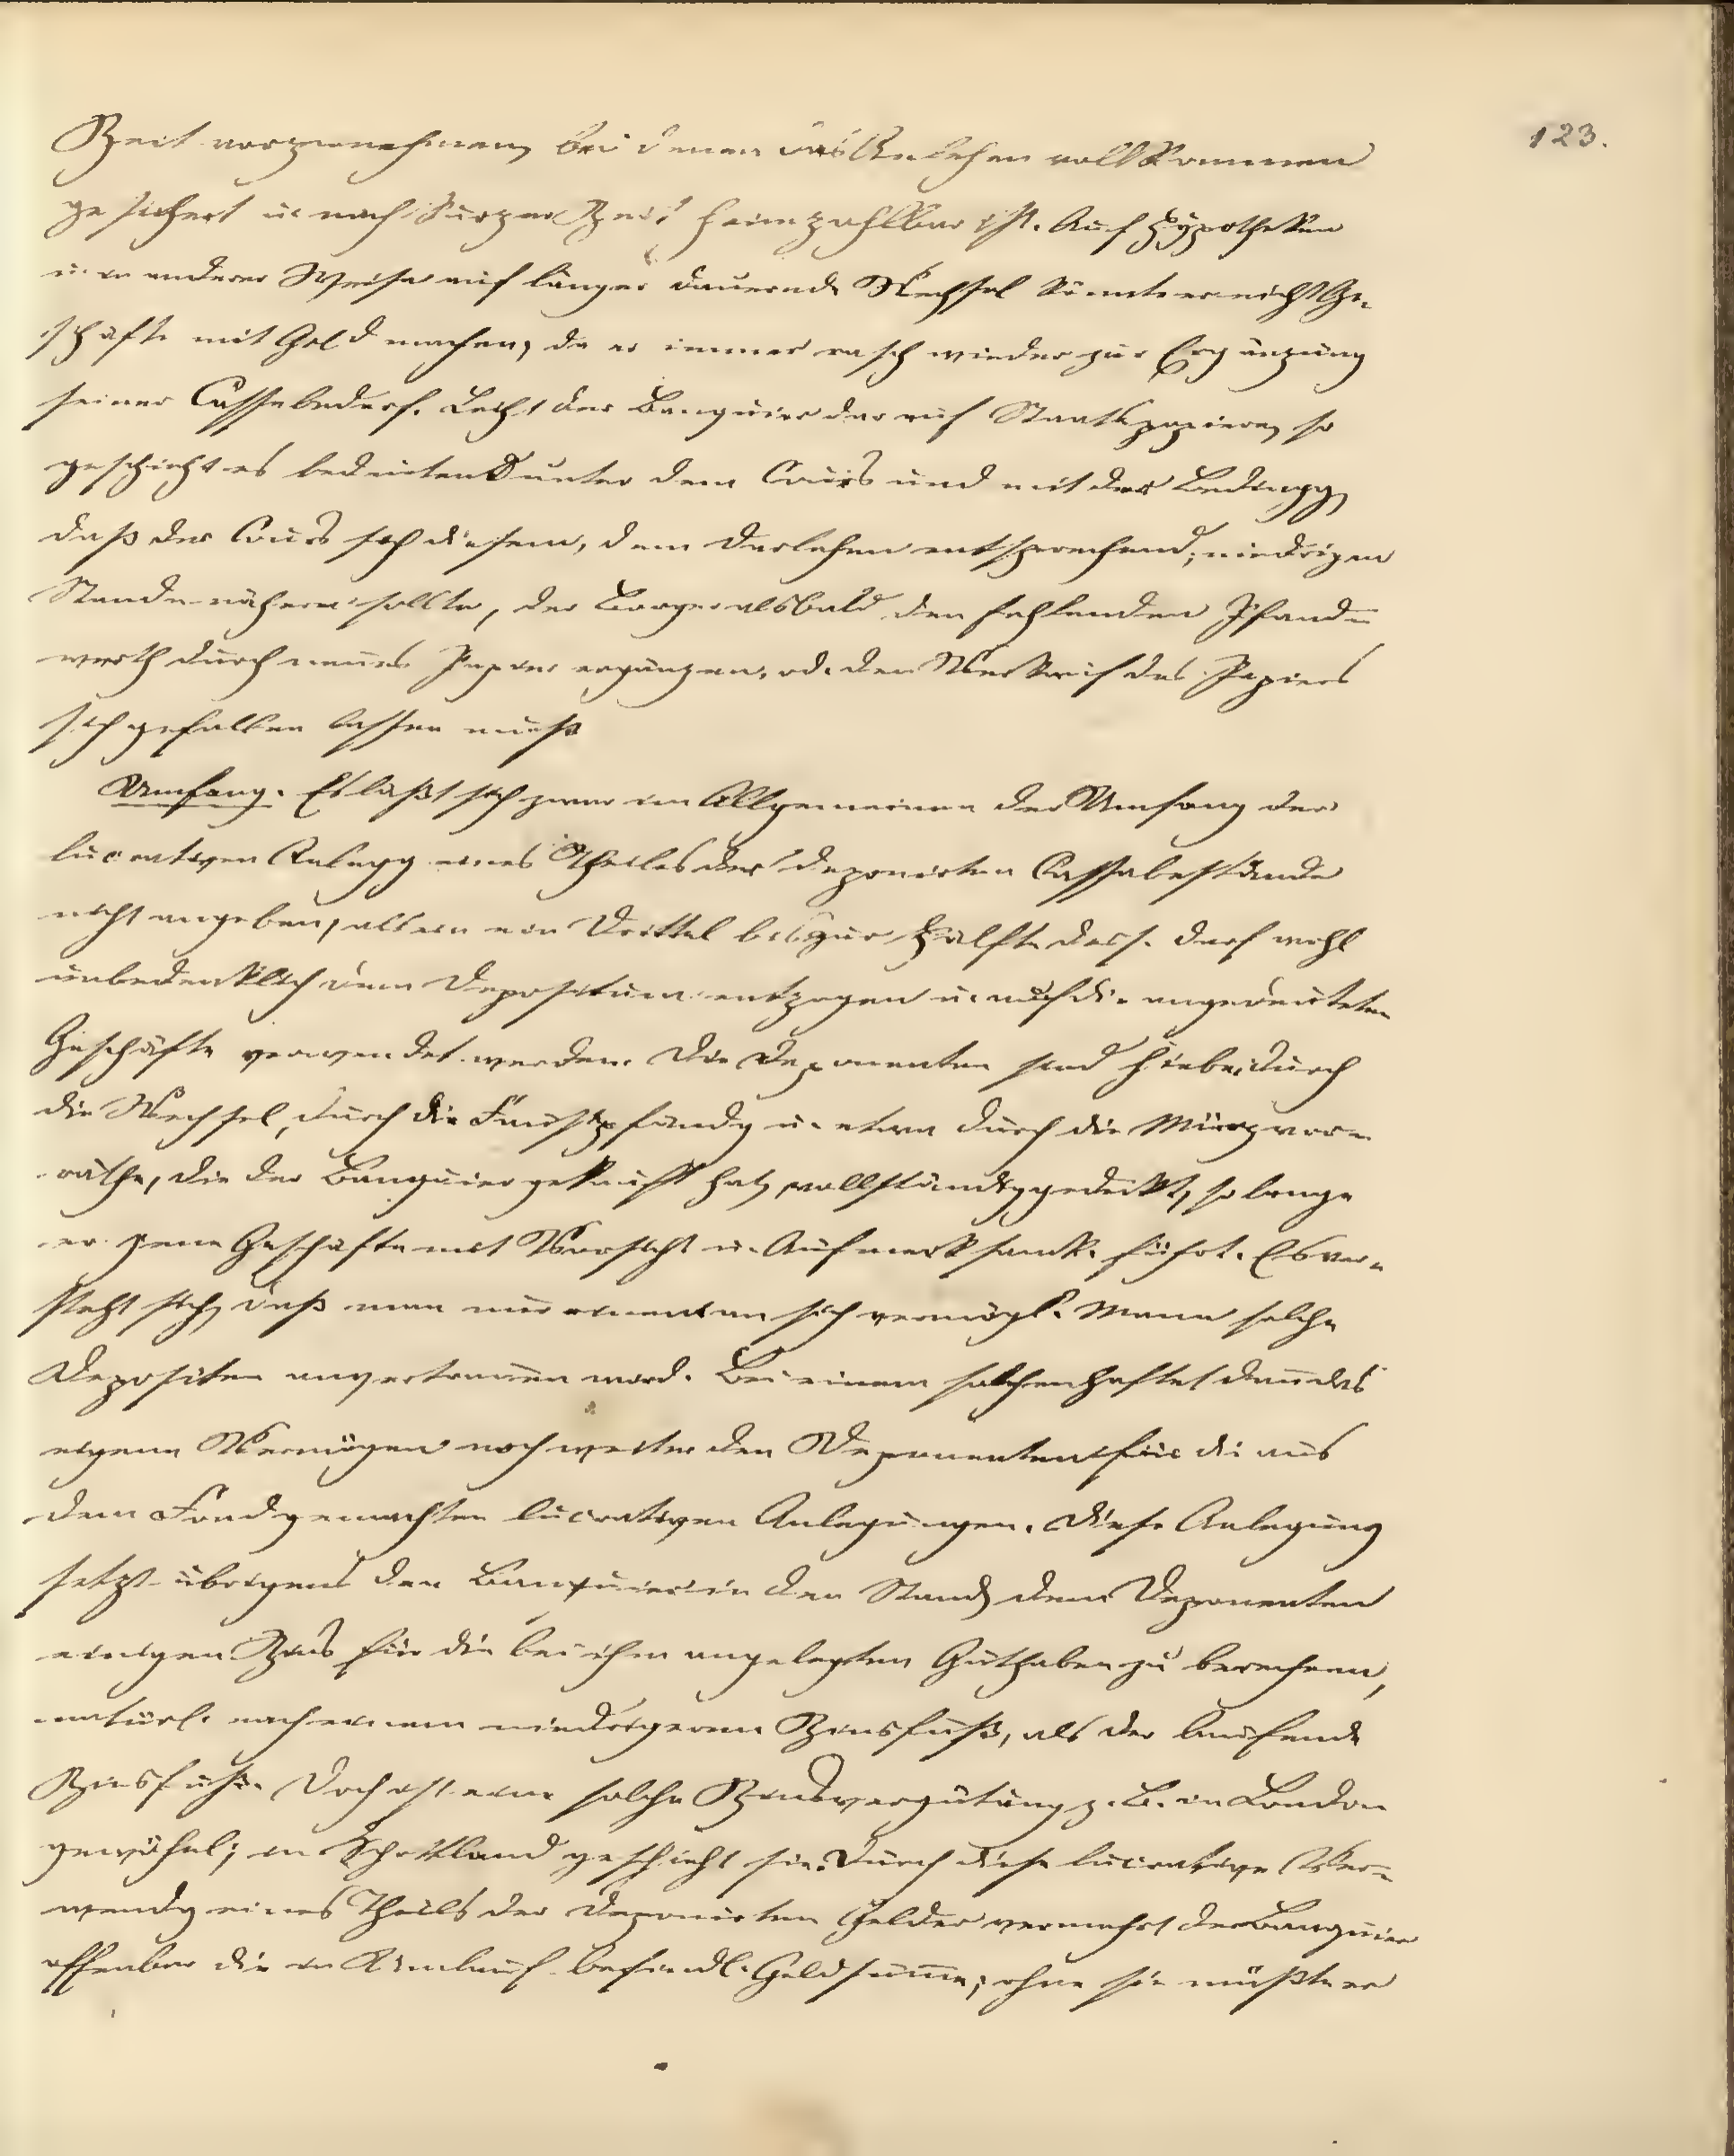 123.
Zeit vorzunehmen, bei denen das Anlehen vollkommen
gesichert u. nach kurzer Zeit heimzahlbar ist. Auf Hypotheken
u. in anderer Weise auf länger dauernde Wechsel könnte er nicht Ge-
schäfte mit Geld machen, da er immer rasch wieder zur Ergänzung
seiner Casse bedarf. Leiht der Banquier dar auf Staatspapiere, so
geschieht es bedeutend unter dem Cours und mit der Bedingg,
daß der Cours sich diesem, dem Darlehen entsprechend, niedrigen
Stande nähern sollte, der Borger alsbald den fehlenden Pfand-
werth durch neues Papier ergänzen, od. den Verkauf des Papiers
sich gefallen lassen muß
Umfang. Es läßt sich zwar im Allgemeinen der Umfang der
lucrativen Anlegg eines Theiles der deponirten Cassabestände
nicht angeben, allein ein Drittel bis zur Hälfte ders. darf wohl
unbedenklich dem Depositum entzogen u. auf die angedeuteten
Geschäfte verwendet werden. Die Deponenten sind hiebei durch
die Wechsel, durch die Faustpfändg u. etwa durch die Münzvor-
räthe, die der Banquier gekauft hat, vollständig gedeckt, so lange
er jene Geschäfte mit Vorsicht u. Aufmerksamk. führt. Es ver-
steht sich, daß man nur einem an sich vermögl. Mann solche
Depositen anvertrauen wird. Bei einem solchen haftet dann das
eigene Vermögen noch weiter den Deponenten für die aus
dem Fond gemachten lucrativen Anlegungen. Diese Anlegung
setzt übrigens den Banquier in den Stand, dem Deponenten
einigen Zins für die bei ihm angelegten Guthaben zu berechnen,
natürl. nach einem niedrigeren Zinsfuß, als der laufende
Zinsfuß. Doch ist eine solche Zinsvergütung z. B. in London
gewöhnl; in Schottland geschieht sie. Durch diese lucrative Ver-
wendg eines Theils der deponirten Gelder vermehrt der Banquier
offenbar die in Umlauf befindl. Geldsumme; ohne sie müßte er